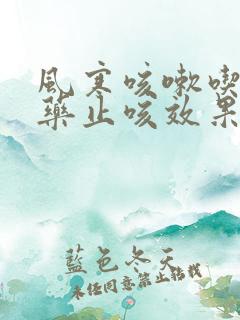 风寒咳嗽喫
药止咳效果
蓝色冬天
未经同意禁止转载